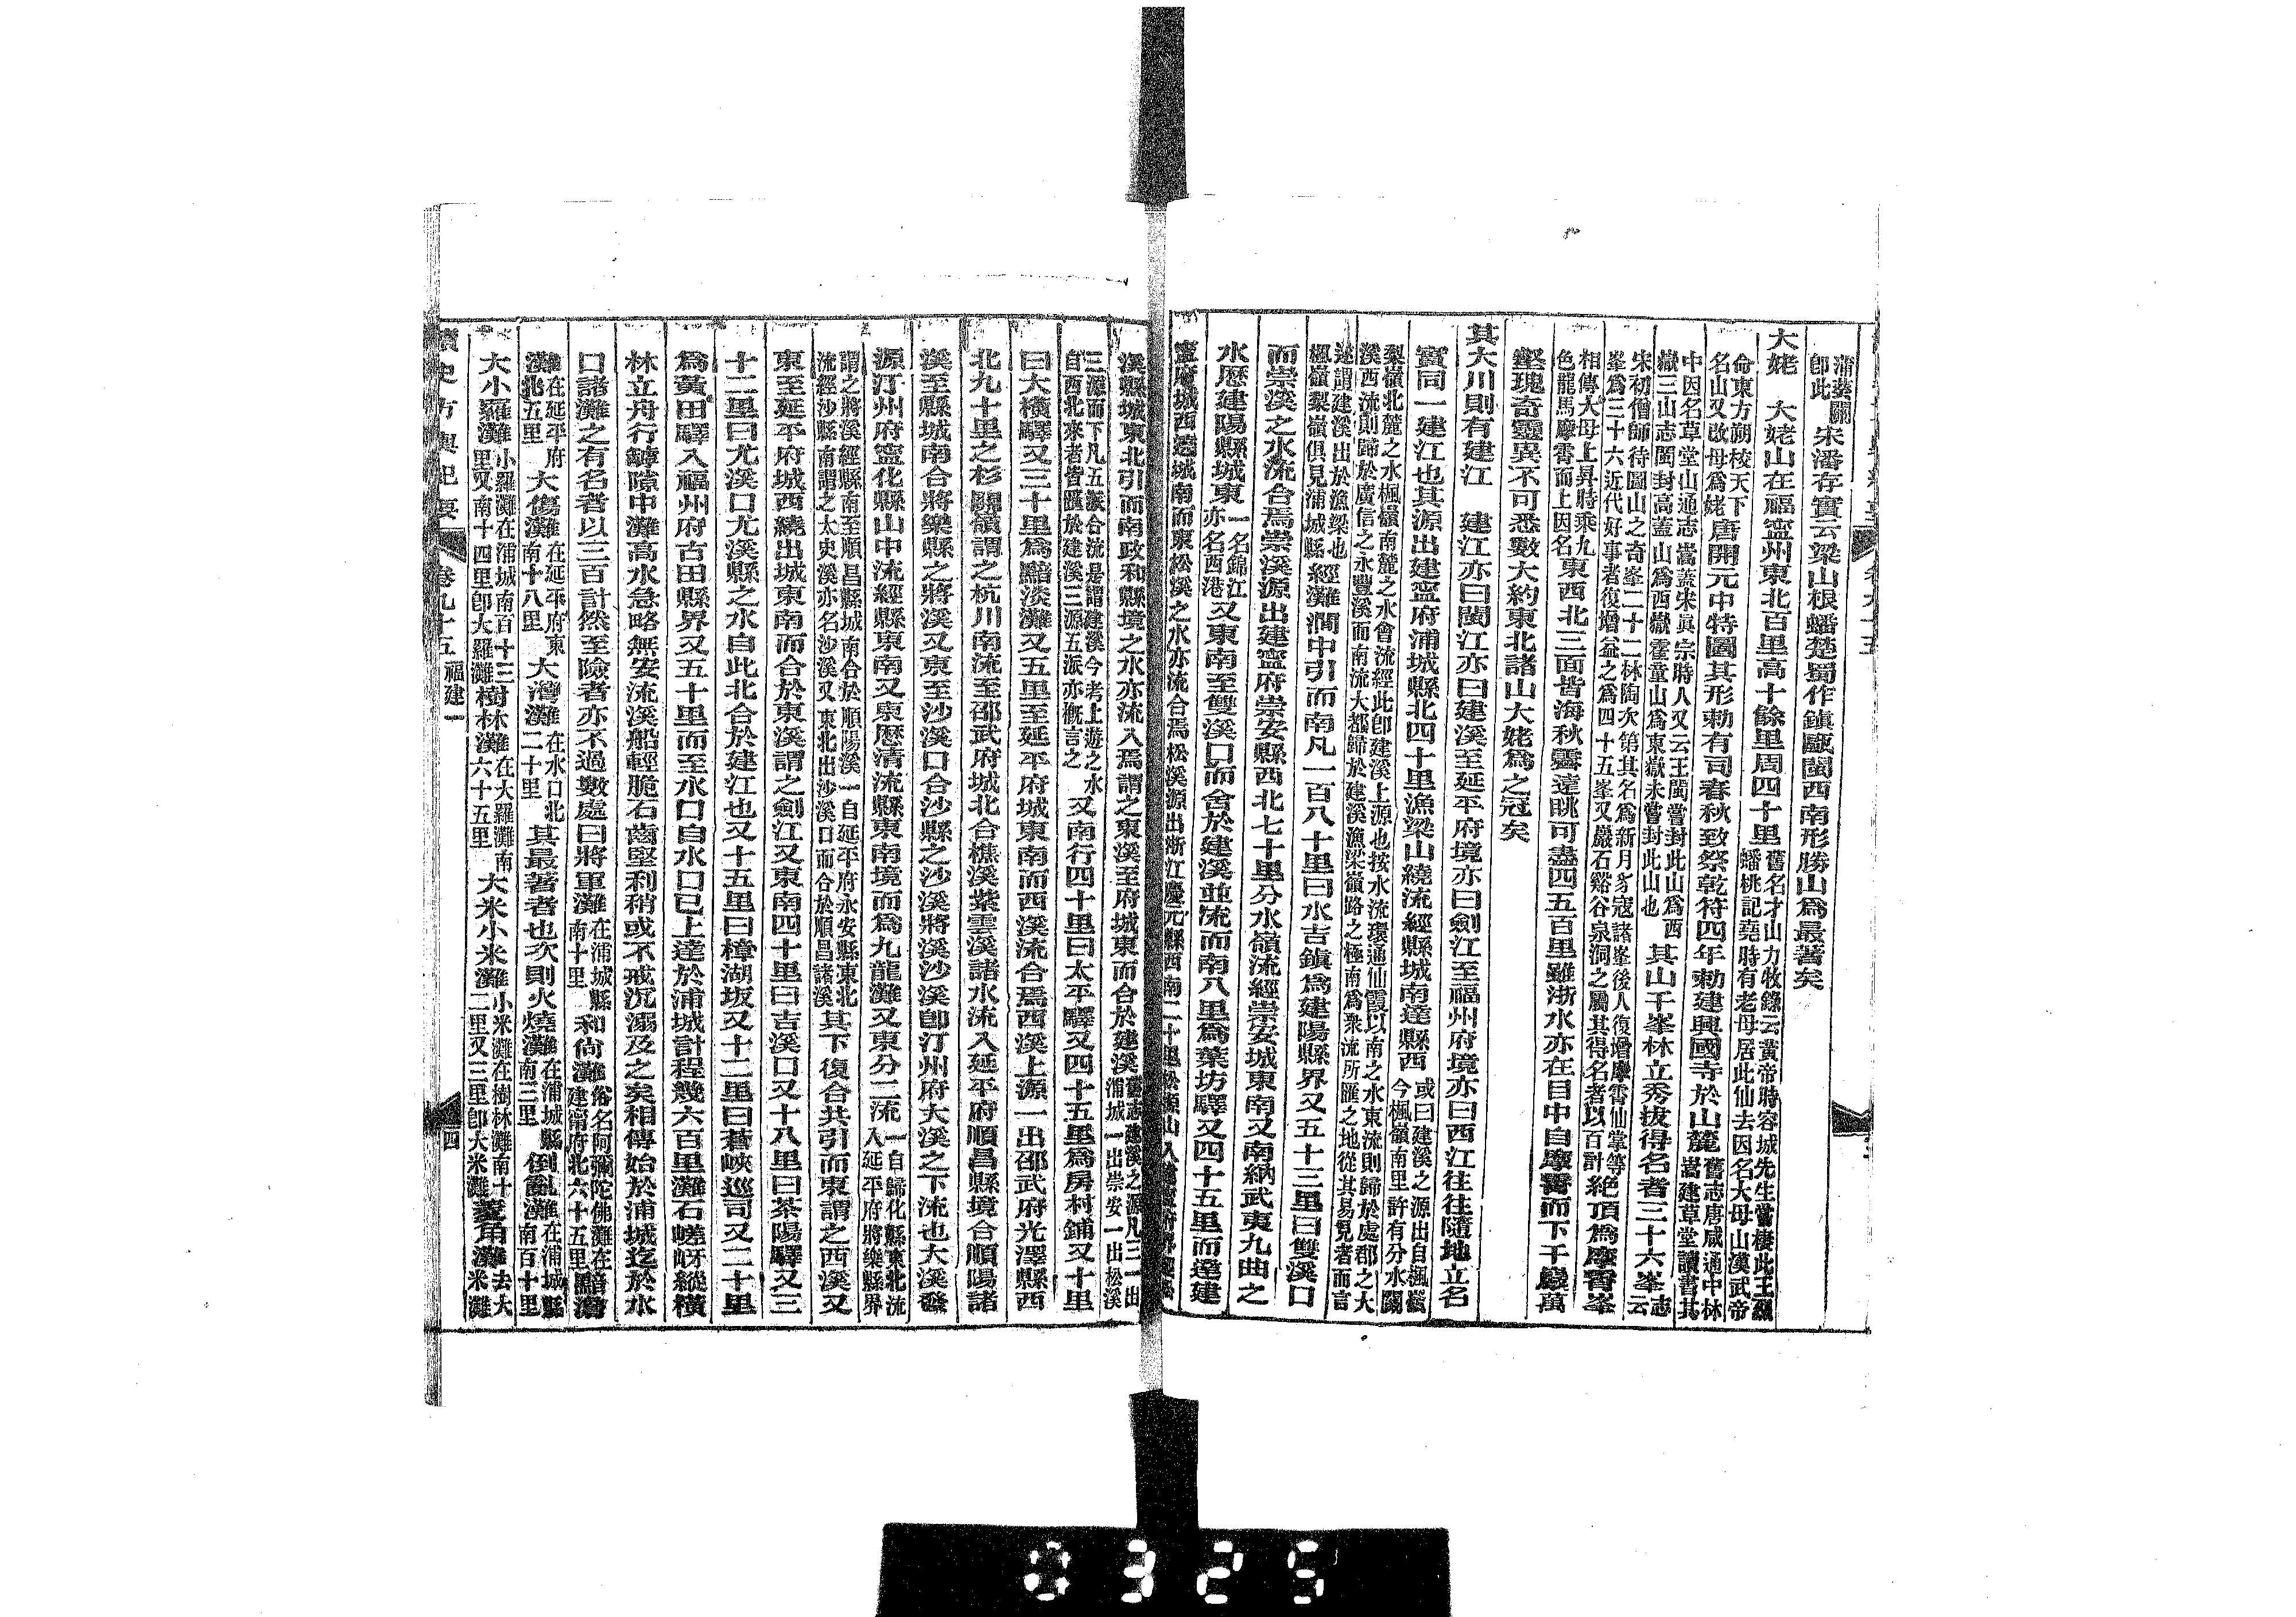 蒲葵關
卽此
宋潘存實云梁山根蟠楚蜀作鎭甌閩西南形勝山爲最著矣
大姥 大姥山在福寧州東北百里高十餘里周四十里
舊名才山力牧錄云黃帝時容城先生嘗棲此王烈
蟠桃記堯時有老母居此仙去因名大母山漢武帝
命東方朔校天下
名山又改母爲姥
唐開元中特圖其形勅有司春秋致祭乾符四年勅建興國寺於山麓
舊志唐咸通中林
嵩建草堂讀書其
中因名草堂山通志嵩蓋宋眞宗時人又云王閩嘗封此山爲西
嶽三山志閩封高蓋山爲西嶽霍童山爲東嶽未嘗封此山也
其山千峯林立秀拔得名者三十六峯
志
云
宋初僧師待圖山之奇峯二十二林陶次第其名爲新月豸寇諸峯後人復增摩霄仙掌等
峯爲三十六近代好事者復增益之爲四十五峯又巖石谿谷泉洞之屬其得名者以百計
絶頂爲摩霄峯
相傳大母上昇時乘九
色龍馬摩霄而上因名
東西北三面皆海秋霽遠眺可盡四五百里雖浙水亦在目中自摩霄而下千巖萬
壑瑰奇靈異不可悉數大約東北諸山大姥爲之冠矣
其大川則有建江 建江亦曰閩江亦曰建溪至延平府境亦曰劍江至福州府境亦曰西江往往隨地立名
實同一建江也其源出建寧府浦城縣北四十里漁梁山繞流經縣城南達縣西
或曰建溪之源出自楓嶺
今楓嶺南里許有分水關
梨嶺北麓之水楓嶺南麓之水會流經此卽建溪上源也按水流環通仙霞以南之水東流則歸於處郡之大
溪西流則歸於廣信之永豐溪而南流大都歸於建溪漁梁嶺路之極南爲衆流所匯之地從其易見者而言
遂謂建溪出於漁梁也
楓嶺梨嶺俱見浦城縣
經灘澗中引而南凡一百八十里曰水吉鎭爲建陽縣界又五十三里曰雙溪口
而崇溪之水流合焉崇溪源出建寧府崇安縣西北七十里分水嶺流經崇安城東南又南納武夷九曲之
水歷建陽縣城東
一名錦江
亦名西港
又東南至雙溪口而會於建溪並流而南八里爲葉坊驛又四十五里而達建
寧府城西遶城南而東松溪之水亦流合焉松溪源出浙江慶元縣西南二十里松源山入建寧府界經松
溪縣城東北引而南政和縣境之水亦流入焉謂之東溪至府城東而合於建溪
舊志建溪之源凡三一出
浦城一出崇安一出松溪
三源而下凡五派合流是謂建溪今考上遊之水
自西北來者皆匯於建溪三源五派亦槪言之
又南行四十里曰太平驛又四十五里爲房村鋪又十里
曰大橫驛又三十里爲黯淡灘又五里至延平府城東南而西溪流合焉西溪上源一出邵武府光澤縣西
北九十里之杉關嶺謂之杭川南流至邵武府城北合樵溪紫雲溪諸水流入延平府順昌縣境合順陽諸
溪至縣城南合將樂縣之將溪又東至沙溪口合沙縣之沙溪將溪沙溪卽汀州府大溪之下流也大溪發
源汀州府寧化縣山中流經縣東南又東歷清流縣東南境而爲九龍灘又東分二流
一自歸化縣東北流
入延平府將樂縣界
謂之將溪經縣南至順昌縣城南合於順陽溪一自延平府永安縣東北
流經沙縣南謂之太史溪亦名沙溪又東北出沙溪口而合於順昌諸溪
其下復合共引而東謂之西溪又
東至延平府城西繞出城東南而合於東溪謂之劍江又東南四十里曰吉溪口又十八里曰茶陽驛又三
十二里曰尤溪口尤溪縣之水自此北合於建江也又十五里曰樟湖坂又十二里曰蒼峽巡司又二十里
爲黃田驛入福州府古田縣界又五十里而至水口自水口已上達於浦城計程幾六百里灘石嵯岈縱橫
林立舟行罅隙中灘高水急略無安流溪船輕脆石齒堅利稍或不戒沉溺及之矣相傳始於浦城迄於水
口諸灘之有名者以三百計然至險者亦不過數處曰將軍灘
在浦城縣
南十里
和尚灘
俗名阿彌陀佛灘在
建甯府北六十五里
黯澹
灘
在延平府
北五里
大傷灘
在延平府東
南十八里
大灣灘
在水口北
二十里
其最著者也次則火燒灘
在浦城縣
南三里
倒亂灘
在浦城縣
南百十里
大小羅灘
小羅灘在浦城南百十三
里又南十四里卽大羅灘
樹林灘
在大羅灘南
六十五里
大米小米灘
小米灘在樹林灘南十
二里又三里卽大米灘
菱角灘
去大
米灘
讀史方輿紀要 卷九十五 福建一 四
0325